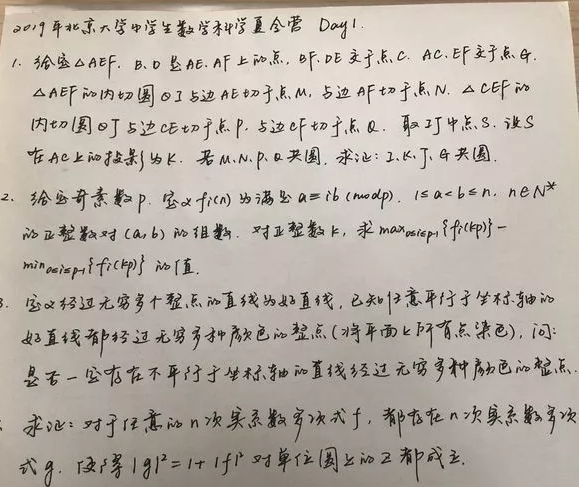 2019年北京大学中学生数学科学夏令营 Day1.
1. 给定△AEF. B.D是AE.AF上的点. BF.DE交于点C. AC.EF交于点G.
△AEF的内切圆⊙I与边AE切于点M, 与边AF切于点N. △CEF的
内切圆⊙J与边CE切于点P. 与边CF切于点Q. 取IJ中点S. 设S
在AC上的投影为K. 若M.N.P.Q共圆. 求证: I.K.J.G共圆.
2. 给定奇素数p. 定义fi(n)为满足a≡ib(modp). 1≤a<b≤n. n∈N*
的正整数对(a,b)的组数. 对正整数k, 求max0≤i≤p-1{fi(kp)}-
min0≤i≤p-1{fi(kp)}的值.
3. 定义经过无穷多个整点的直线为好直线, 已知任意平行于坐标轴的
好直线都经过无穷多种颜色的整点(将平面上所有点染色), 问:
是否一定存在不平行于坐标轴的直线经过无穷多种颜色的整点.
求证: 对于任意的n次实系数多项式f, 都存在n次实系数多项
式g. 使得|g|²=1+|f|²对单位圆上的z都成立.